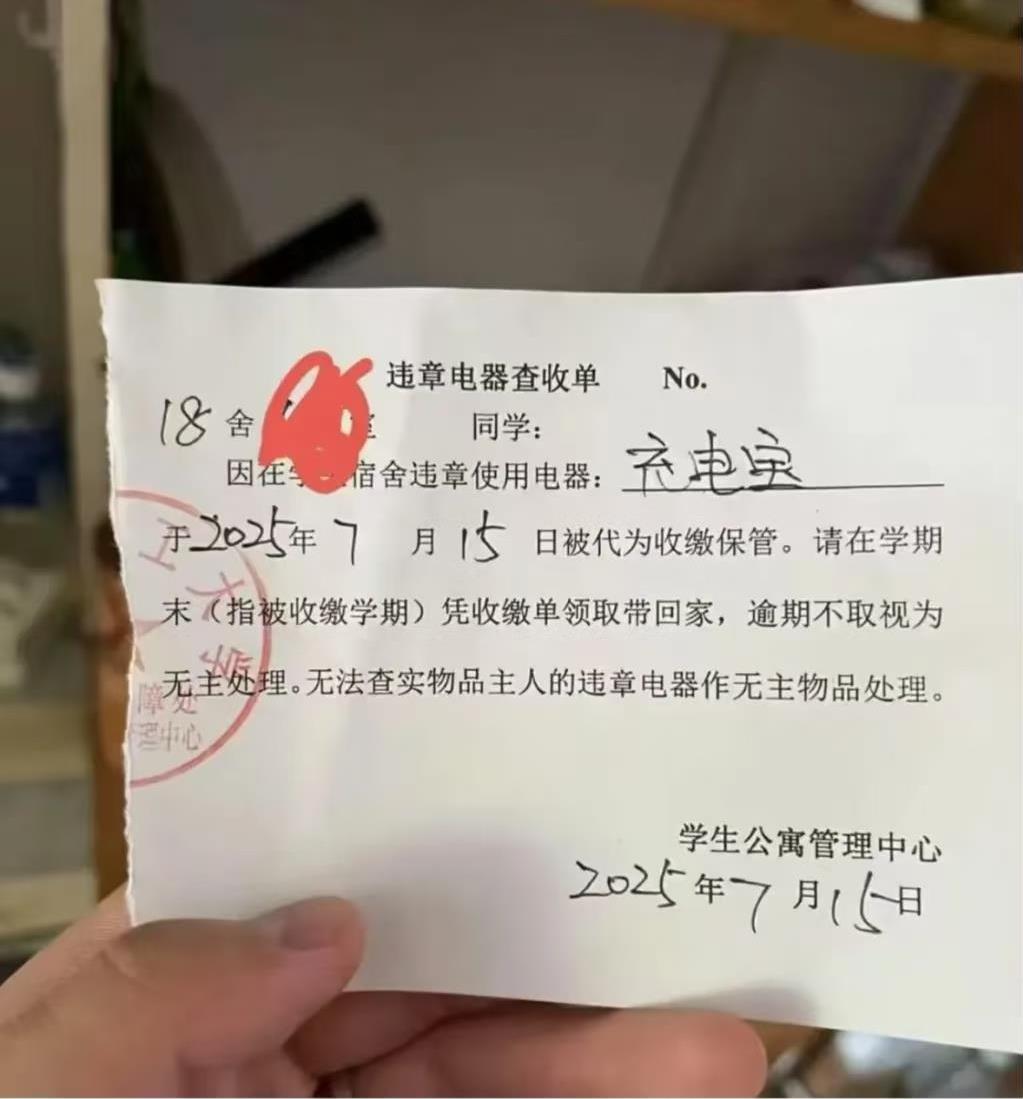 违章电器查收单 No.
18 舍 室 同学：
因在学 宿舍违章使用电器：充电宝
于2025年 7 月 15 日被代为收缴保管。请在学期
末（指被收缴学期）凭收缴单领取带回家，逾期不取视为
无主处理。无法查实物品主人的违章电器作无主物品处理。
工大学
障处
管理中心
学生公寓管理中心
2025年7月15日